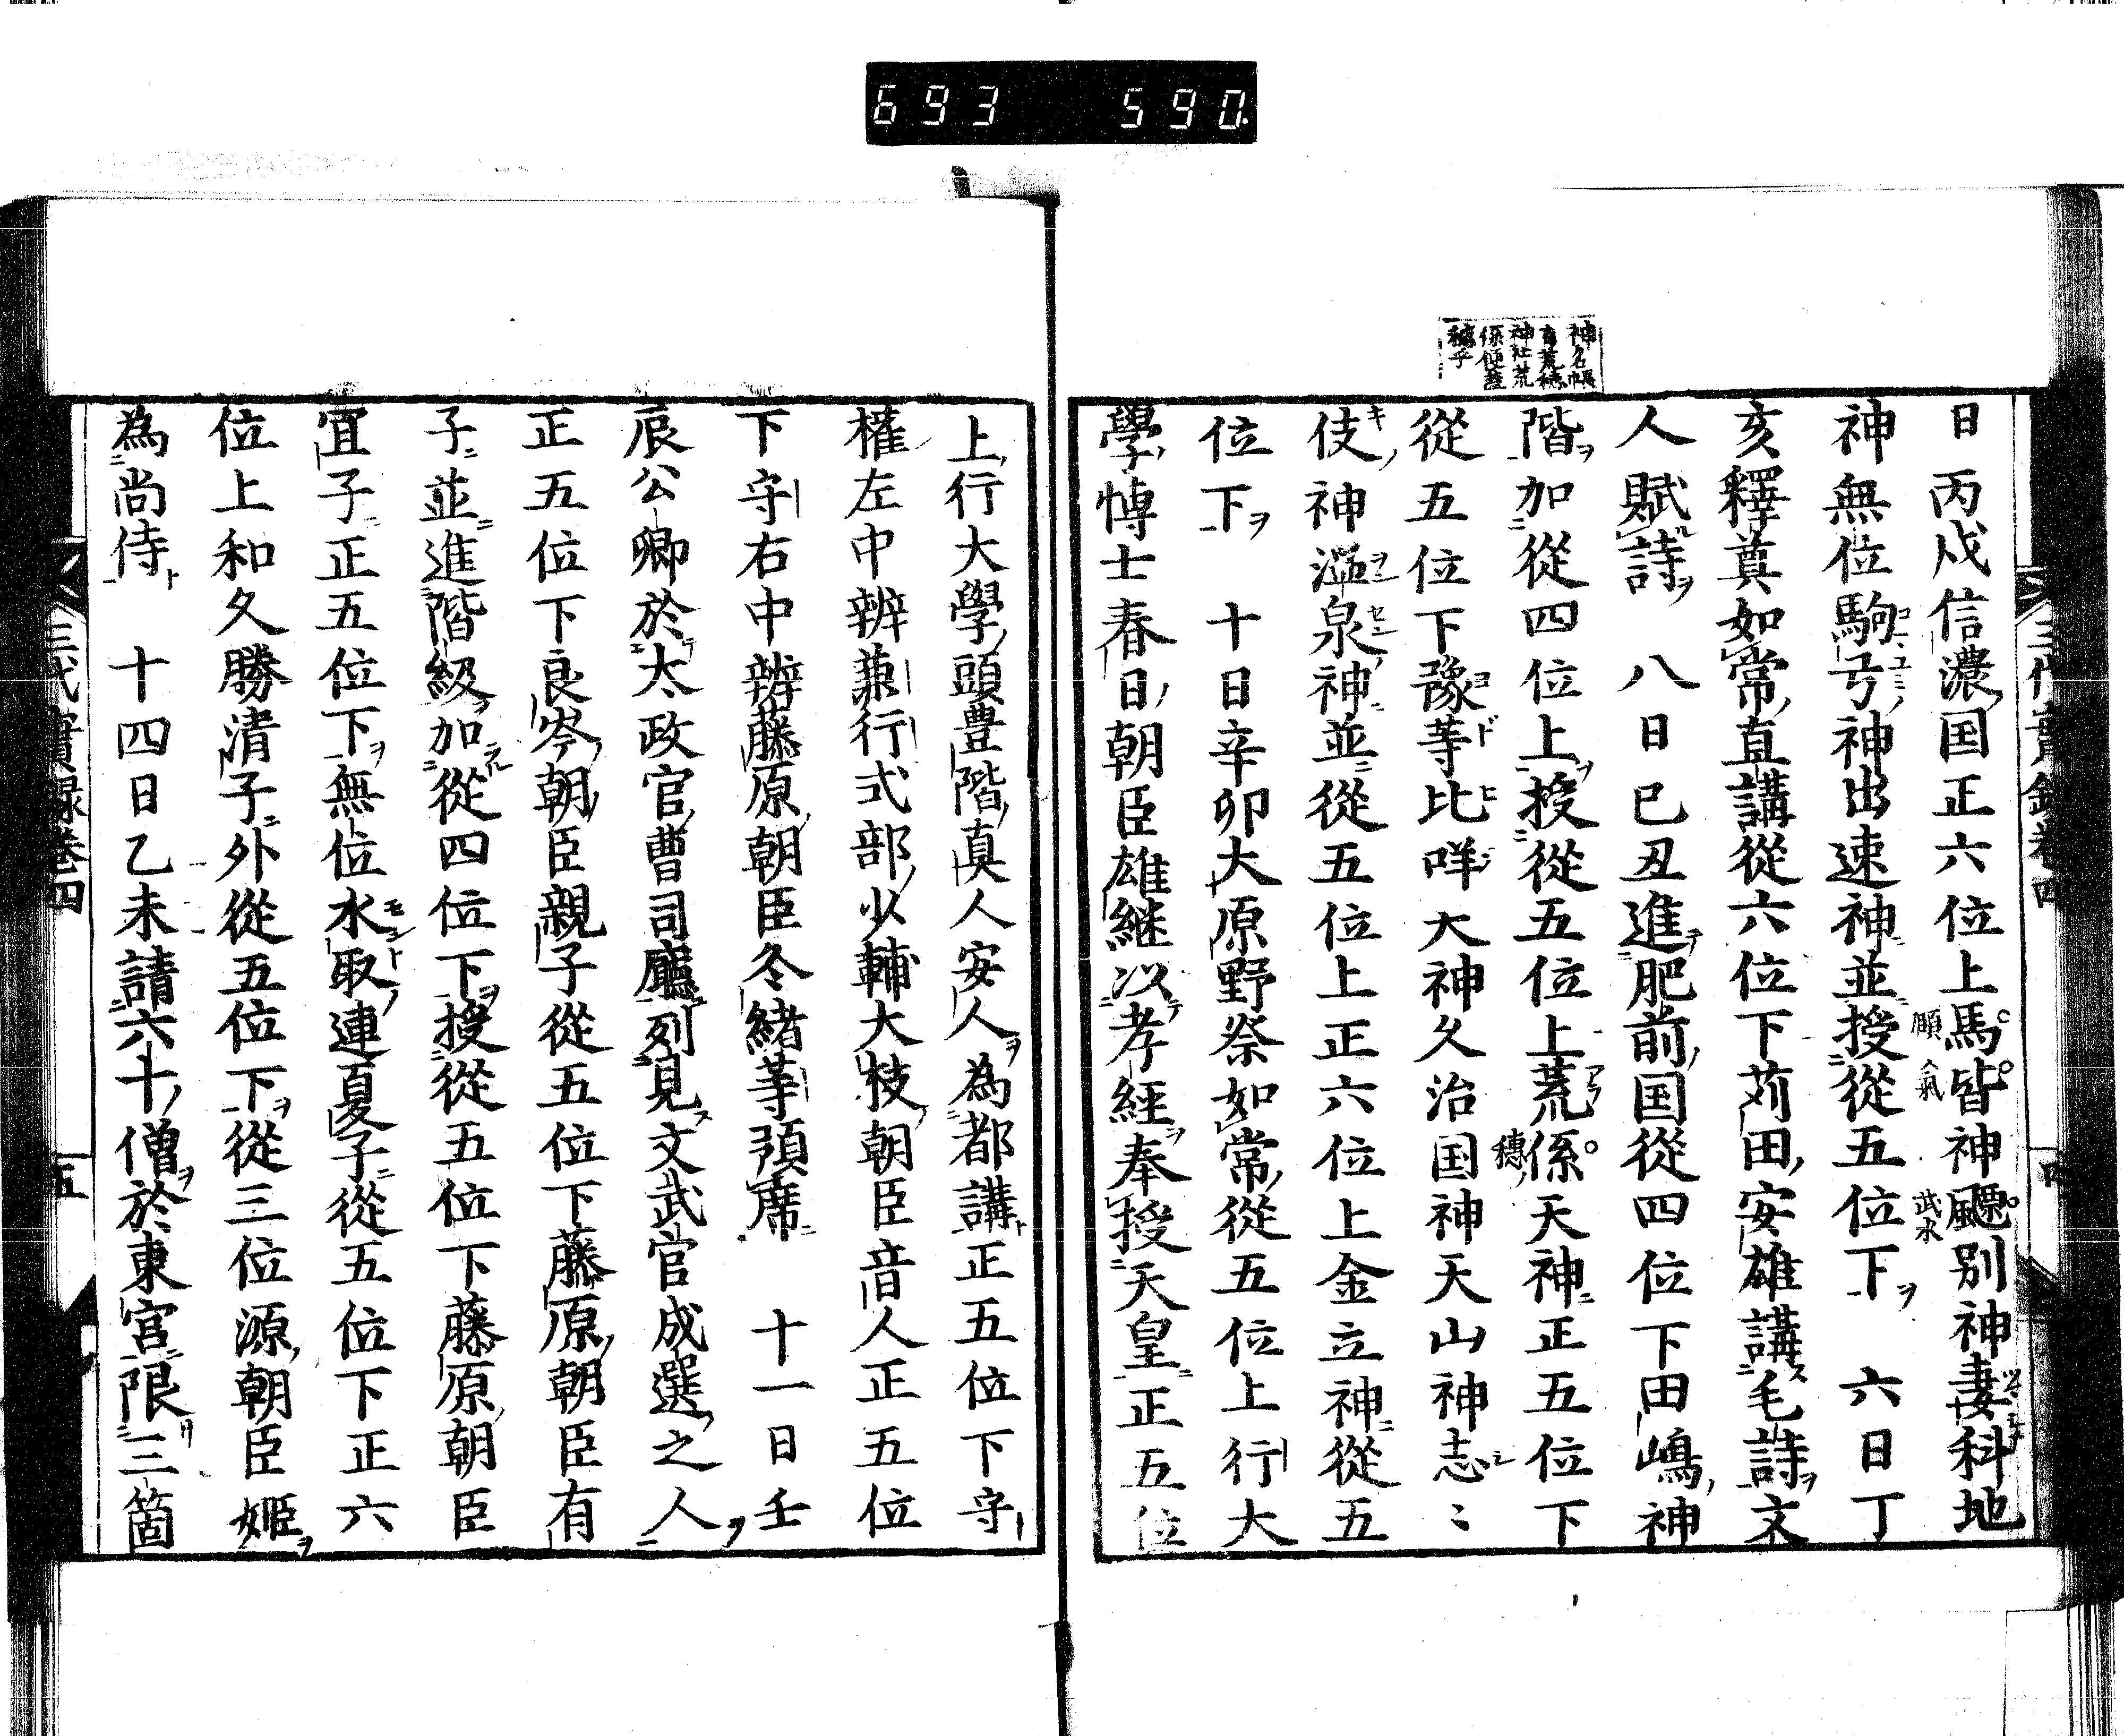 693 590.
神名帳
有荒穂
神社荒
係便蓋
穂乎
日丙戌信濃国正六位上馬皆神飈別神妻科地
神無位駒弓神出速神並授從五位下　六日丁
亥釋奠如常直講從六位下苅田安雄講毛詩文
人賦詩　八日已丑進肥前国從四位下田嶋神
階加從四位上授從五位上荒係天神正五位下
從五位下豫等比咩大神久治国神天山神志〻
伎神溫泉神並從五位上正六位上金立神從五
位下　十日辛卯大原野祭如常從五位上行大
學博士春日朝臣雄継以孝經奉授天皇正五位
上行大學頭豊階真人安人為都講正五位下守
權左中辨兼行式部少輔大枝朝臣音人正五位
下守右中辨藤原朝臣冬緒等預席　十一日壬
辰公卿於太政官曹司廳列見文武官成選之人
正五位下良岑朝臣親子從五位下藤原朝臣有
子並進階級加從四位下授從五位下藤原朝臣
宜子正五位下無位水取連夏子從五位下正六
位上和久勝清子外從五位下從三位源朝臣姬
為尚侍　十四日乙未請六十僧於東宮限三箇
三代實録巻四
五